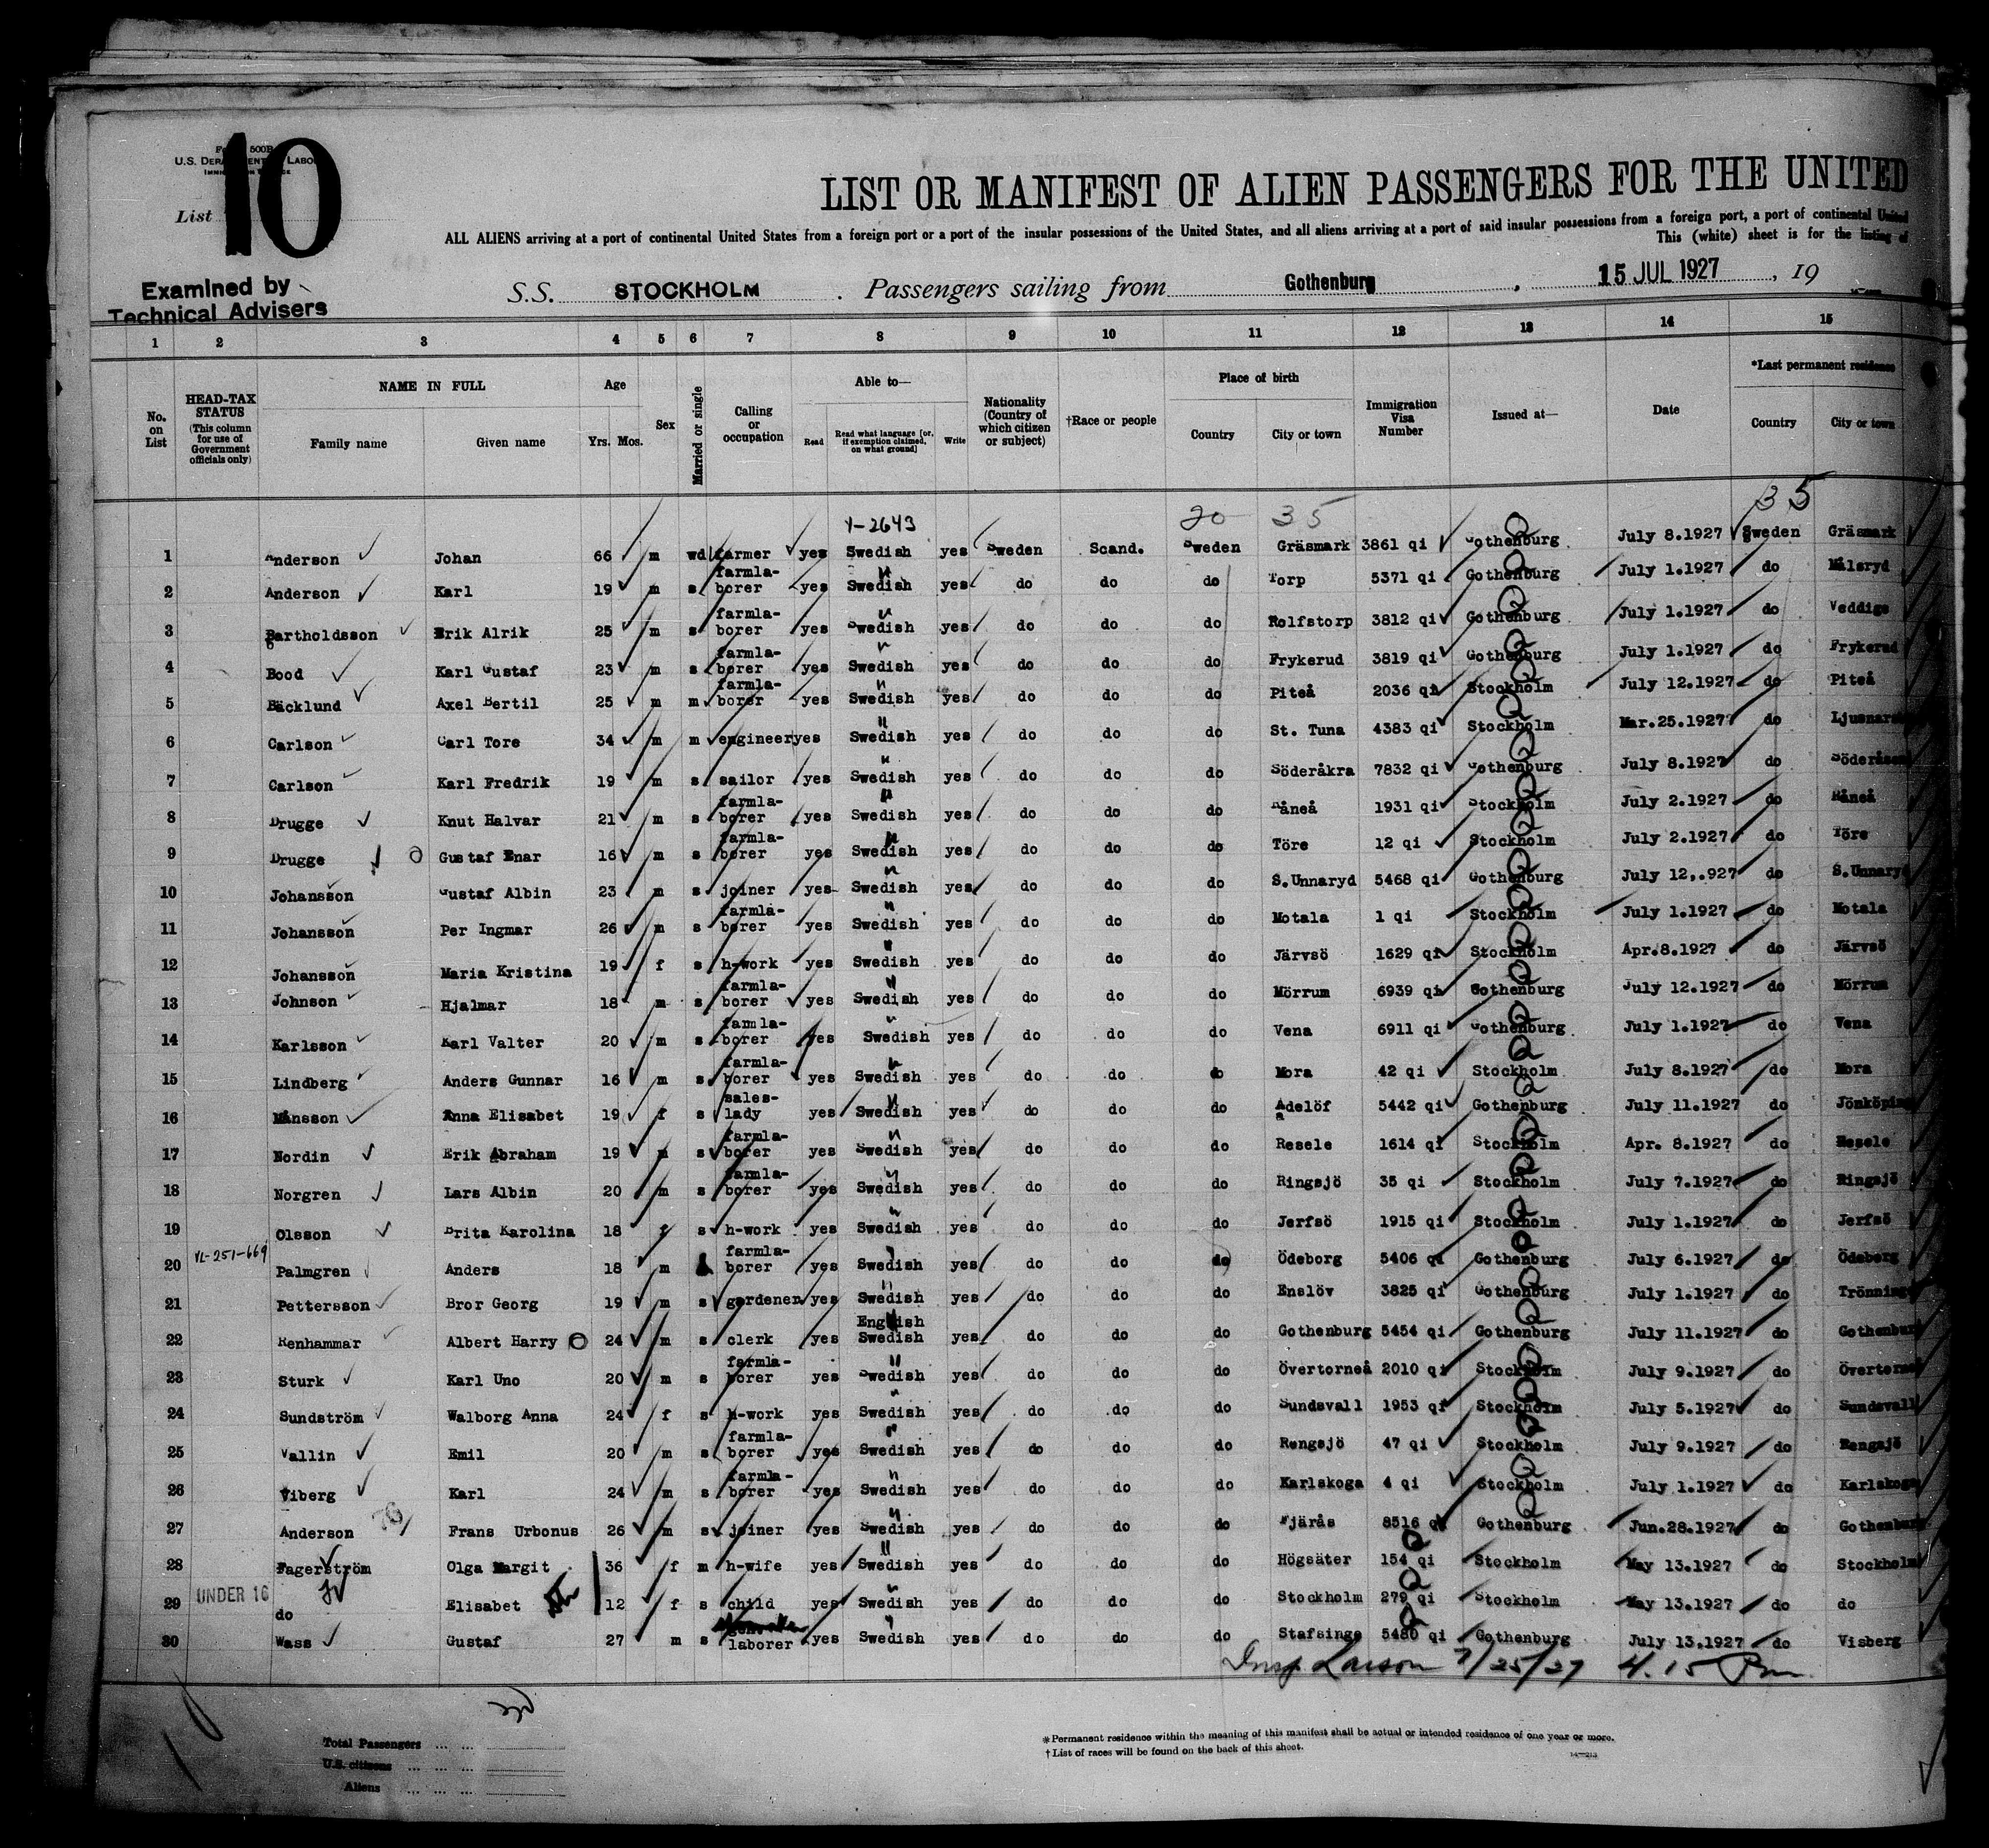 10
Form 500B
U.S. DEPARTMENT OF LABOR
IMMIGRATION SERVICE
List
LIST OR MANIFEST OF ALIEN PASSENGERS FOR THE UNITED
ALL ALIENS arriving at a port of continental United States from a foreign port or a port of the insular possessions of the United States, and all aliens arriving at a port of said insular possessions from a foreign port, a port of continental United
This (white) sheet is for the listing of
Examined by
Technical Advisers
S.S. STOCKHOLM . Passengers sailing from Gothenburg , 15 JUL 1927 , 19
1 2 3 4 5 6 7 8 9 10 11 12 13 14 15
No. on List
HEAD-TAX STATUS (This column for use of Government officials only)
NAME IN FULL
Family name Given name
Age
Yrs. Mos.
Sex
Married or single
Calling or occupation
Able to—
Read Read what language [or, if exemption claimed, on what ground] Write
Nationality (Country of which citizen or subject)
†Race or people
Place of birth
Country City or town
Immigration Visa Number
Issued at—
Date
*Last permanent residence
Country City or town
35
1-2643 20 35
1 Anderson Johan 66 m wd farmer yes Swedish yes Sweden Scand. Sweden Gräsmark 3861 qi Gothenburg July 8.1927 Sweden Gräsmark
2 Anderson Karl 19 m s farmla-borer yes Swedish yes do do do Torp 5371 qi Gothenburg July 1.1927 do Målsryd
3 Bartholdsson Erik Alrik 25 m s farmla-borer yes Swedish yes do do do Rolfstorp 3812 qi Gothenburg July 1.1927 do Veddige
4 Bood Karl Gustaf 23 m s farmla-borer yes Swedish yes do do do Frykerud 3819 qi Gothenburg July 1.1927 do Frykerud
5 Bäcklund Axel Bertil 25 m m farmla-borer yes Swedish yes do do do Piteå 2036 qi Stockholm July 12.1927 do Piteå
6 Carlson Carl Tore 34 m m engineer yes Swedish yes do do do St. Tuna 4383 qi Stockholm Mar.25.1927 do
7 Carlson Karl Fredrik 19 m s sailor yes Swedish yes do do do Söderåkra 7832 qi Gothenburg July 8.1927 do
8 Drugge Knut Halvar 21 m s farmla-borer yes Swedish yes do do do Råneå 1931 qi Stockholm July 2.1927 do Råneå
9 Drugge Gustaf Enar 16 m s farmla-borer yes Swedish yes do do do Töre 12 qi Stockholm July 2.1927 do Töre
10 Johansson Gustaf Albin 23 m s joiner yes Swedish yes do do do S.Unnaryd 5468 qi Gothenburg July 12,.927 do S.Unnaryd
11 Johansson Per Ingmar 26 m s farmla-borer yes Swedish yes do do do Motala 1 qi Stockholm July 1.1927 do Motala
12 Johansson Maria Kristina 19 f s h-work yes Swedish yes do do do Järvsö 1629 qi Stockholm Apr.8.1927 do Järvsö
13 Johnson Hjalmar 18 m s farmla-borer yes Swedish yes do do do Mörrum 6939 qi Gothenburg July 12.1927 do Mörrum
14 Karlsson Karl Valter 20 m s famla-borer yes Swedish yes do do do Vena 6911 qi Gothenburg July 1.1927 do Vena
15 Lindberg Anders Gunnar 16 m s farmla-borer yes Swedish yes do do do Mora 42 qi Stockholm July 8.1927 do Mora
16 Månsson Anna Elisabet 19 f s sales-lady yes Swedish yes do do do Adelöf 5442 qi Gothenburg July 11.1927 do Jönköping
17 Nordin Erik Abraham 19 m s farmla-borer yes Swedish yes do do do Resele 1614 qi Stockholm Apr. 8.1927 do Resele
18 Norgren Lars Albin 20 m s farmla-borer yes Swedish yes do do do Ringsjö 35 qi Stockholm July 7.1927 do Ringsjö
19 Olsson Brita Karolina 18 f s h-work yes Swedish yes do do do Jerfsö 1915 qi Stockholm July 1.1927 do Jerfsö
20 VL-251-669 Palmgren Anders 18 m farmla-borer yes Swedish yes do do do Ödeborg 5406 qi Gothenburg July 6.1927 do Ödeborg
21 Pettersson Bror Georg 19 m s gardener yes Swedish yes do do do Enslöv 3825 qi Gothenburg July 1.1927 do
22 Renhammar Albert Harry 24 m s clerk yes English Swedish yes do do do Gothenburg 5454 qi Gothenburg July 11.1927 do Gothenburg
23 Sturk Karl Uno 20 m s farmla-borer yes Swedish yes do do do Övertorneå 2010 qi Stockholm July 9.1927 do Övertorneå
24 Sundström Walborg Anna 24 f s h-work yes Swedish yes do do do Sundsvall 1953 qi Stockholm July 5.1927 do Sundsvall
25 Vallin Emil 20 m s farmla-borer yes Swedish yes do do do Rengsjö 47 qi Stockholm July 9.1927 do Rengsjö
26 Viberg Karl 24 m s farmla-borer yes Swedish yes do do do Karlskoga 4 qi Stockholm July 1.1927 do Karlskoga
27 Anderson Frans Urbonus 26 m s joiner yes Swedish yes do do do Fjärås 8516 qi Gothenburg Jun.28.1927 do Gothenburg
28 Fagerström Olga Margit 36 f m h-wife yes Swedish yes do do do Högsäter 154 qi Stockholm May 13.1927 do Stockholm
29 UNDER 16 do Elisabet 12 f s child yes Swedish yes do do do Stockholm 279 qi Stockholm May 13.1927 do do
30 Wass Gustaf 27 m s laborer yes Swedish yes do do do Stafsinge 5480 qi Gothenburg July 13.1927 do Visberg
Insp. Larson 7/25/27 4.15 Pm
Total Passengers ... ...
U.S. citizens ... ... ...
Aliens ... ... ...
*Permanent residence within the meaning of this manifest shall be actual or intended residence of one year or more.
†List of races will be found on the back of this sheet.
14—213